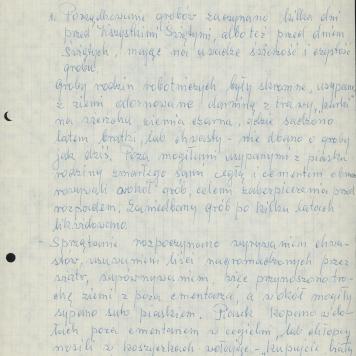 1. Porządkowanie grobów zaczynano kilka dni
przed Wszystkimi Świętymi, albo też przed dniem
Świętych, mając na uwadze świeżość i czystość
grobu.
Groby rodzin robotniczych były skromne, usypane
z ziemi odornowane darniną z trawy,
na wierzchu ziemia czarna, gdzie sadzono
latem bratki, lub chwasty - nie dbano o groby
jak dziś. Poza mogiłami usypanymi z piasku
rodziny zmarłego sami cegłą i cementem
wokół grób, celem zabezpieczenia przed
rozpadem. Zaniedbany grób po kilku latach
likwidowano.
- Sprzątanie rozpoczynano wyrywaniem chwa-
stów, usuwaniem liści nagromadzonych przez
wiatr, wyrównywaniem, więc przynoszono tro-
chę ziemi z poza cmentarza, a wokół mogiły
sypano suto piaskiem. Piasek kopano w do-
łach poza cmentarzem w cegielni, lub chłopcy
nosili w koszyczkach wołając - kupujcie biały